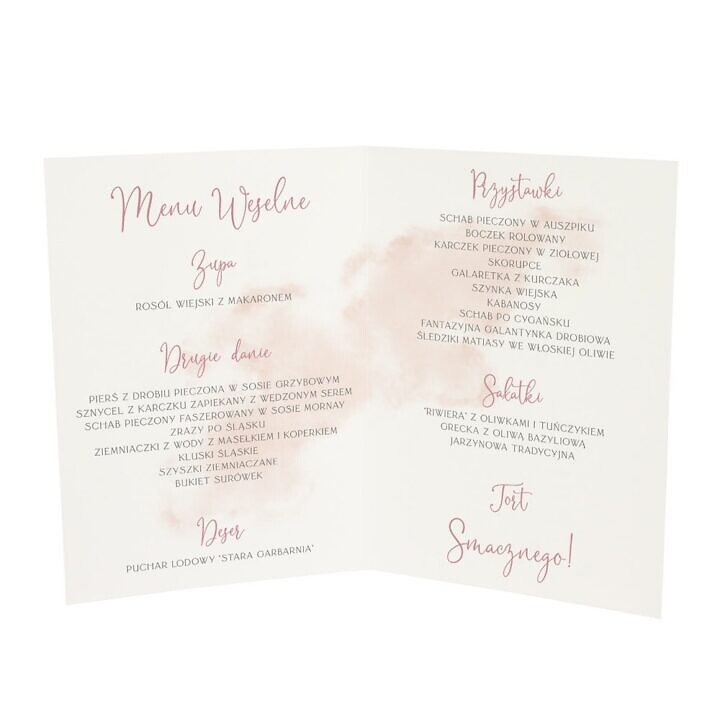 Menu Weselne
Zupa
ROSÓL WIEJSKI Z MAKARONEM
Drugie danie
PIERŚ Z DROBIU PIECZONA W SOSIE GRZYBOWYM
SZNYCEL Z KARCZKU ZAPIEKANY Z WĘDZONYM SEREM
SCHAB PIECZONY FASZEROWANY W SOSIE MORNAY
ZRAZY PO ŚLĄSKU
ZIEMNIACZKI Z WODY Z MASEŁKIEM I KOPERKIEM
KLUSKI ŚLĄSKIE
SZYSZKI ZIEMNIACZANE
BUKIET SURÓWEK
Deser
PUCHAR LODOWY "STARA GARBARNIA"
Przystawki
SCHAB PIECZONY W AUSZPIKU
BOCZEK ROLOWANY
KARCZEK PIECZONY W ZIOŁOWEJ
SKORUPCE
GALARETKA Z KURCZAKA
SZYNKA WIEJSKA
KABANOSY
SCHAB PO CYGAŃSKU
FANTAZYJNA GALANTYNKA DROBIOWA
ŚLEDZIKI MATIASY WE WŁOSKIEJ OLIWIE
Sałatki
"RIWIERA" Z OLIWKAMI I TUŃCZYKIEM
GRECKA Z OLIWĄ BAZYLIOWĄ
JARZYNOWA TRADYCYJNA
Tort
Smacznego!